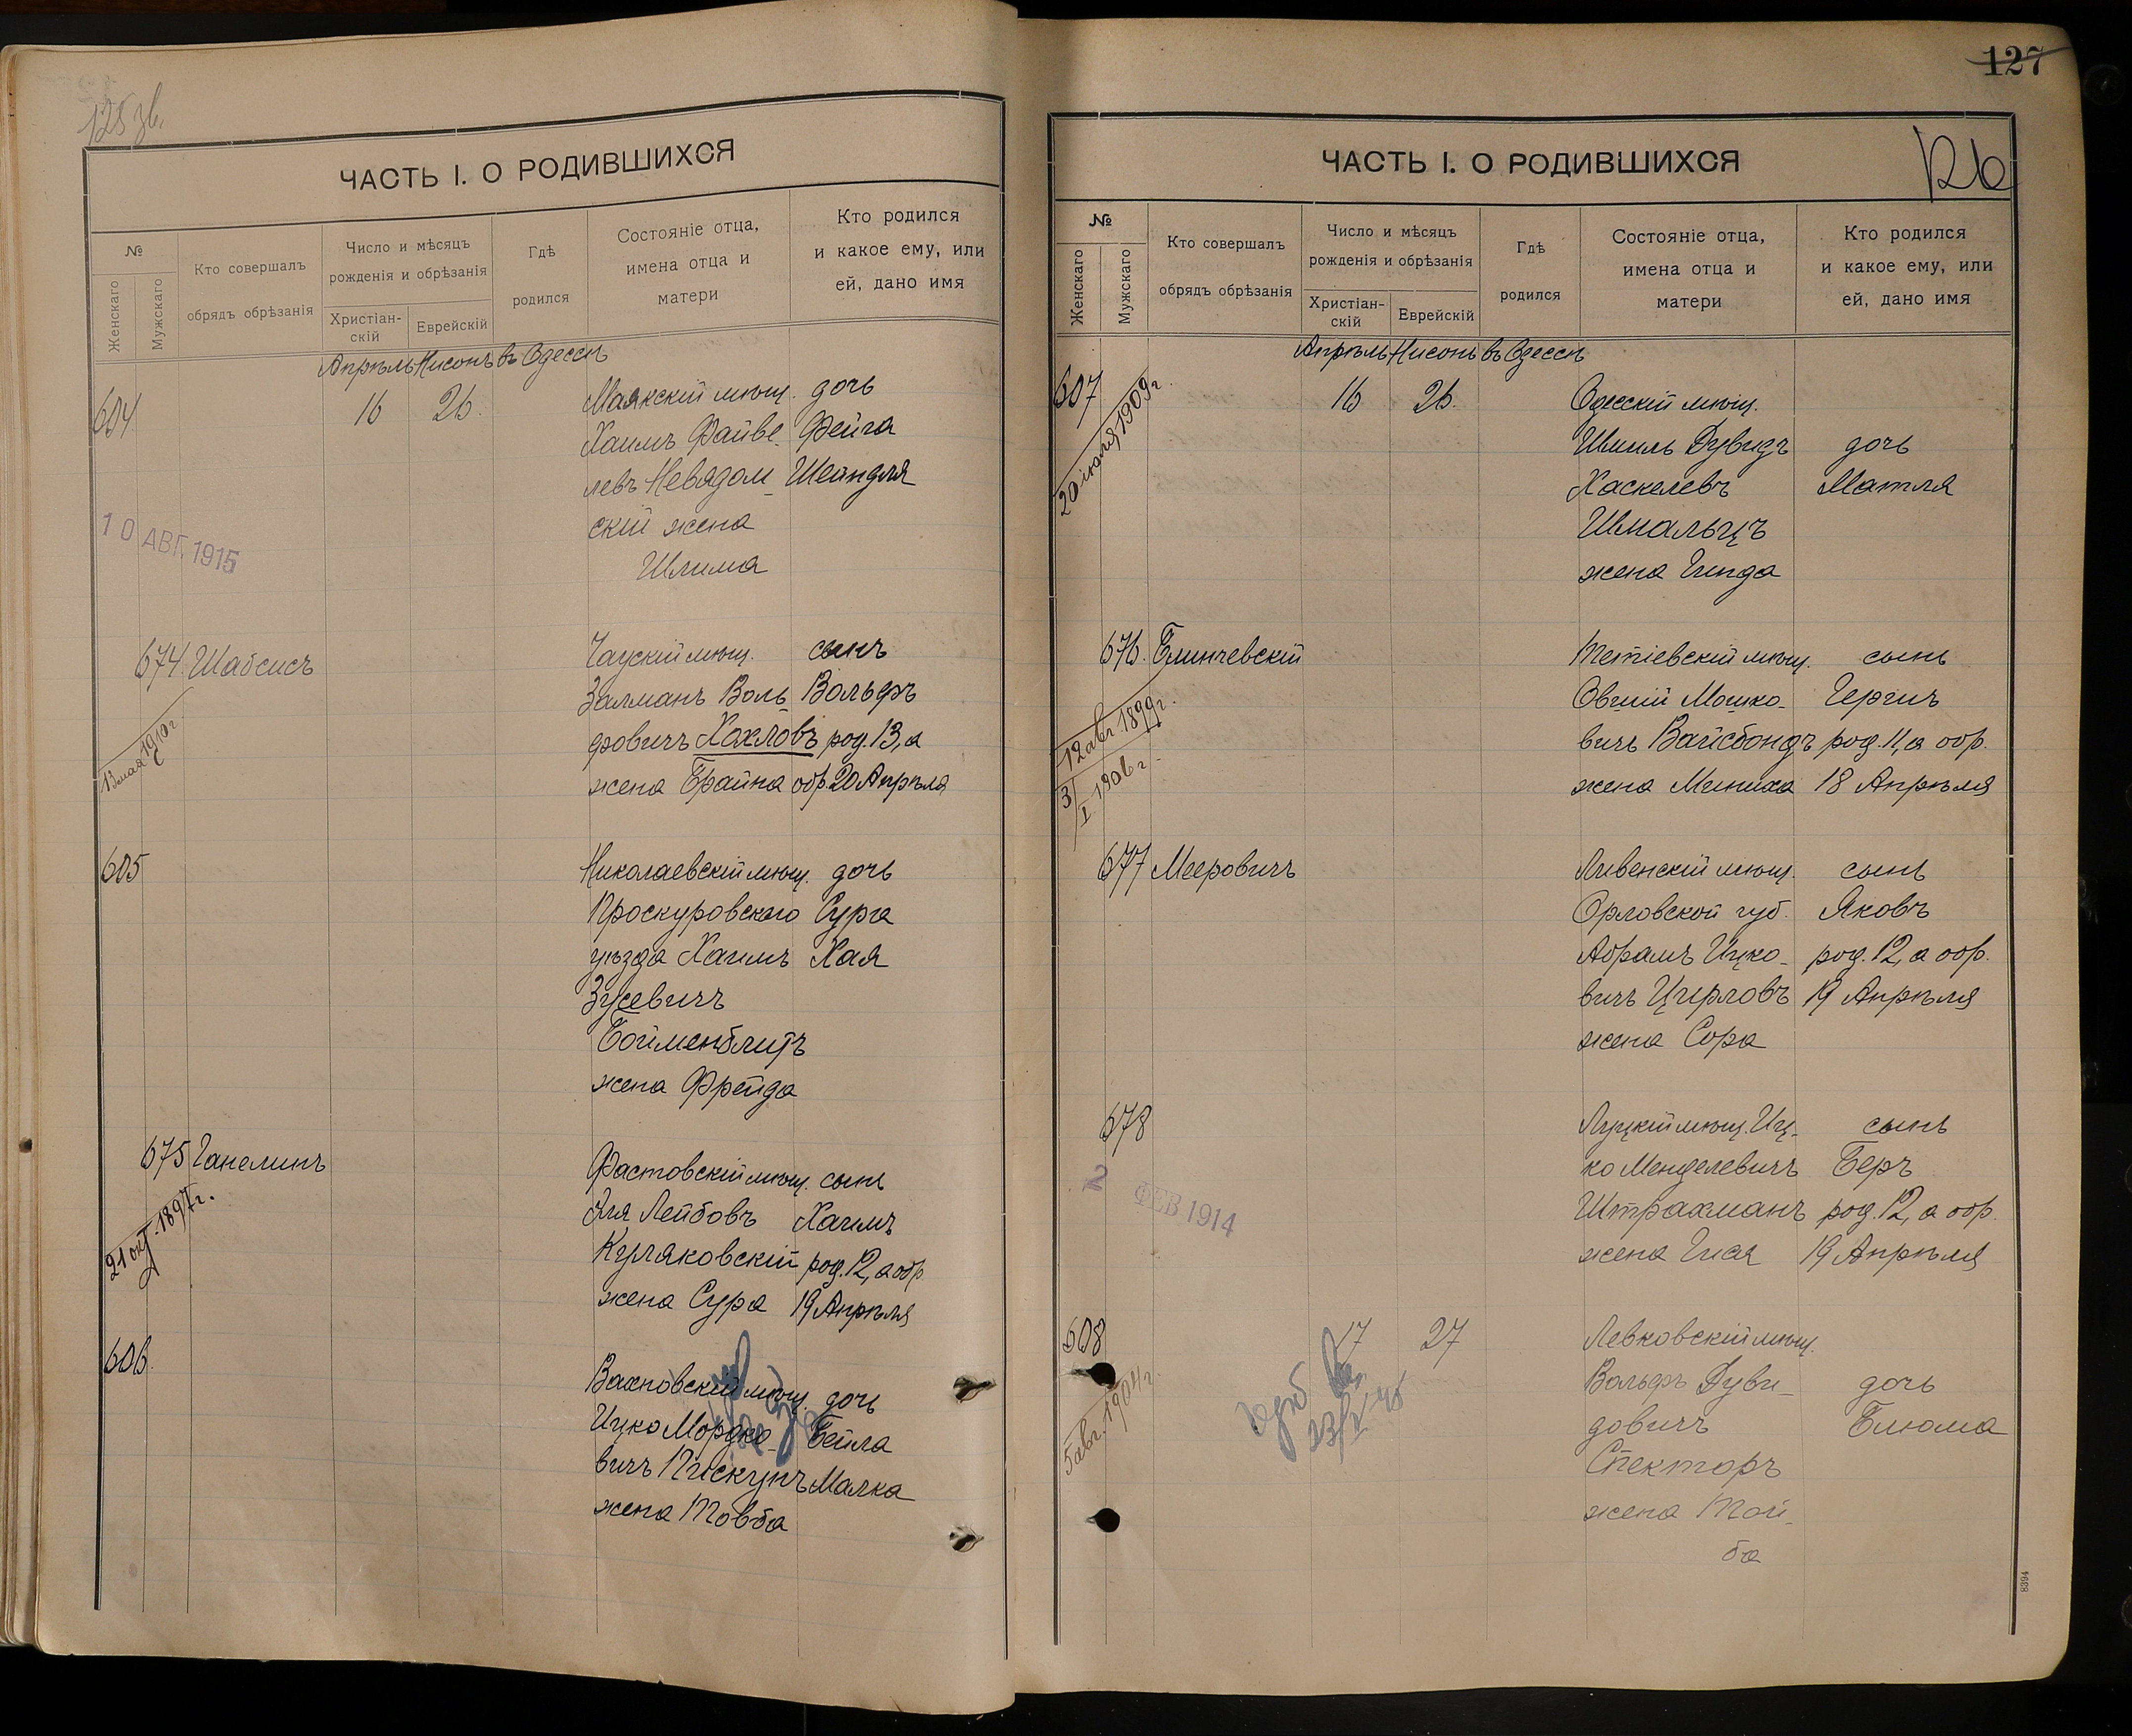 125 зв.
ЧАСТЬ I. О РОДИВШИХСЯ
№
Женскаго
Мужскаго
Кто совершалъ
обрядъ обрѣзанія
Число и мѣсяцъ
рожденія и обрѣзанія
Христіан-
скій
Еврейскій
Гдѣ
родился
Состояніе отца,
имена отца и
матери
Кто родился
и какое ему, или
ей, дано имя
Апрѣль Нисонъ въ Одессѣ
604 16 26. Маякскій мѣщ. дочь
Хаимъ Файве- Фейга
левъ Невядом- Шейндля
скій жена
Шлима
10 АВГ. 1915
674. Шабсисъ Чаускій мѣщ. сынъ
Залманъ Воль- Вольфъ
фовичъ Хохловъ род. 13, а
жена Брайна обр. 20 Апрѣля
13 мая 1910 г
605 Николаевскій мѣщ. дочь
Проскуровскаго Сурга
уѣзда Хаимъ Хая
Зусевичъ
Бойменблитъ
жена Фрейда
675 Ганелинъ Фастовскій мѣщ. сынъ
Эля Лейбовъ Хаимъ
Куляковскій род. 12, а обр.
жена Сура 19 Апрѣля
21 окт. 1897 г.
606. Вахновскій мѣщ. дочь
Ицко Мордко- Бейла
вичъ Пискунъ Малка
жена Товба
127
126
ЧАСТЬ I. О РОДИВШИХСЯ
№
Женскаго
Мужскаго
Кто совершалъ
обрядъ обрѣзанія
Число и мѣсяцъ
рожденія и обрѣзанія
Христіан-
скій
Еврейскій
Гдѣ
родился
Состояніе отца,
имена отца и
матери
Кто родился
и какое ему, или
ей, дано имя
Апрѣль Нисонъ въ Одессѣ
607 16 26. Одесскій мѣщ.
Шмиль Дувидъ дочь
Хаскелевъ Матля
Шмальцъ
жена Гинда
20 іюля 1909 г.
676. Блинчевскій Тетіевскій мѣщ. сынъ
Овшій Мошко- Гершъ
вичъ Вайсбондъ род. 11, а обр.
жена Миниха 18 Апрѣля
12 авг. 1899 г.
3/I 1906 г.
677 Мееровичъ Ливенскій мѣщ. сынъ
Орловской губ. Яковъ
Абрамъ Ицко- род. 12, а обр.
вичъ Цирловъ 19 Апрѣля
жена Сора
678 Луцкій мѣщ. Иц- сынъ
ко Менделевичъ Беръ
Штрахманъ род. 12, а обр.
жена Гися 19 Апрѣля
2 ФЕВ 1914
608 17 27 Левковскій мѣщ.
Вольфъ Дуви- дочь
довичъ Блюма
Спекторъ
жена Той-
ба
5 авг. 1904 г.
8394